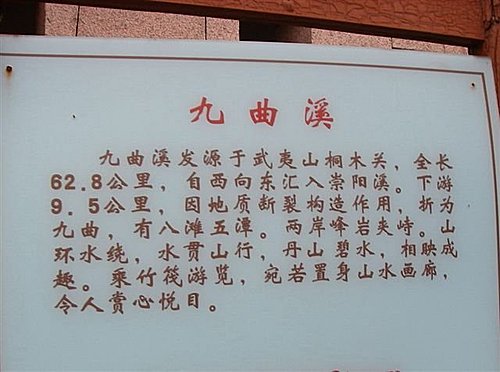 九曲溪
九曲溪发源于武夷山桐木关，全长
62.8公里，自西向东汇入崇阳溪。下游
9.5公里，因地质断裂构造作用，折为
九曲，有八滩五潭。两岸峰岩夹峙。山
环水绕，水贯山行，丹山碧水，相映成
趣。乘竹筏游览，宛若置身山水画廊，
令人赏心悦目。